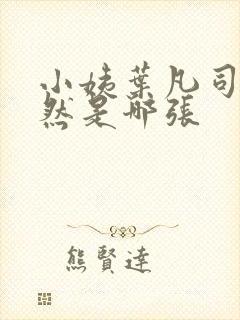 小姨葉凡司
然是那張
熊賢達